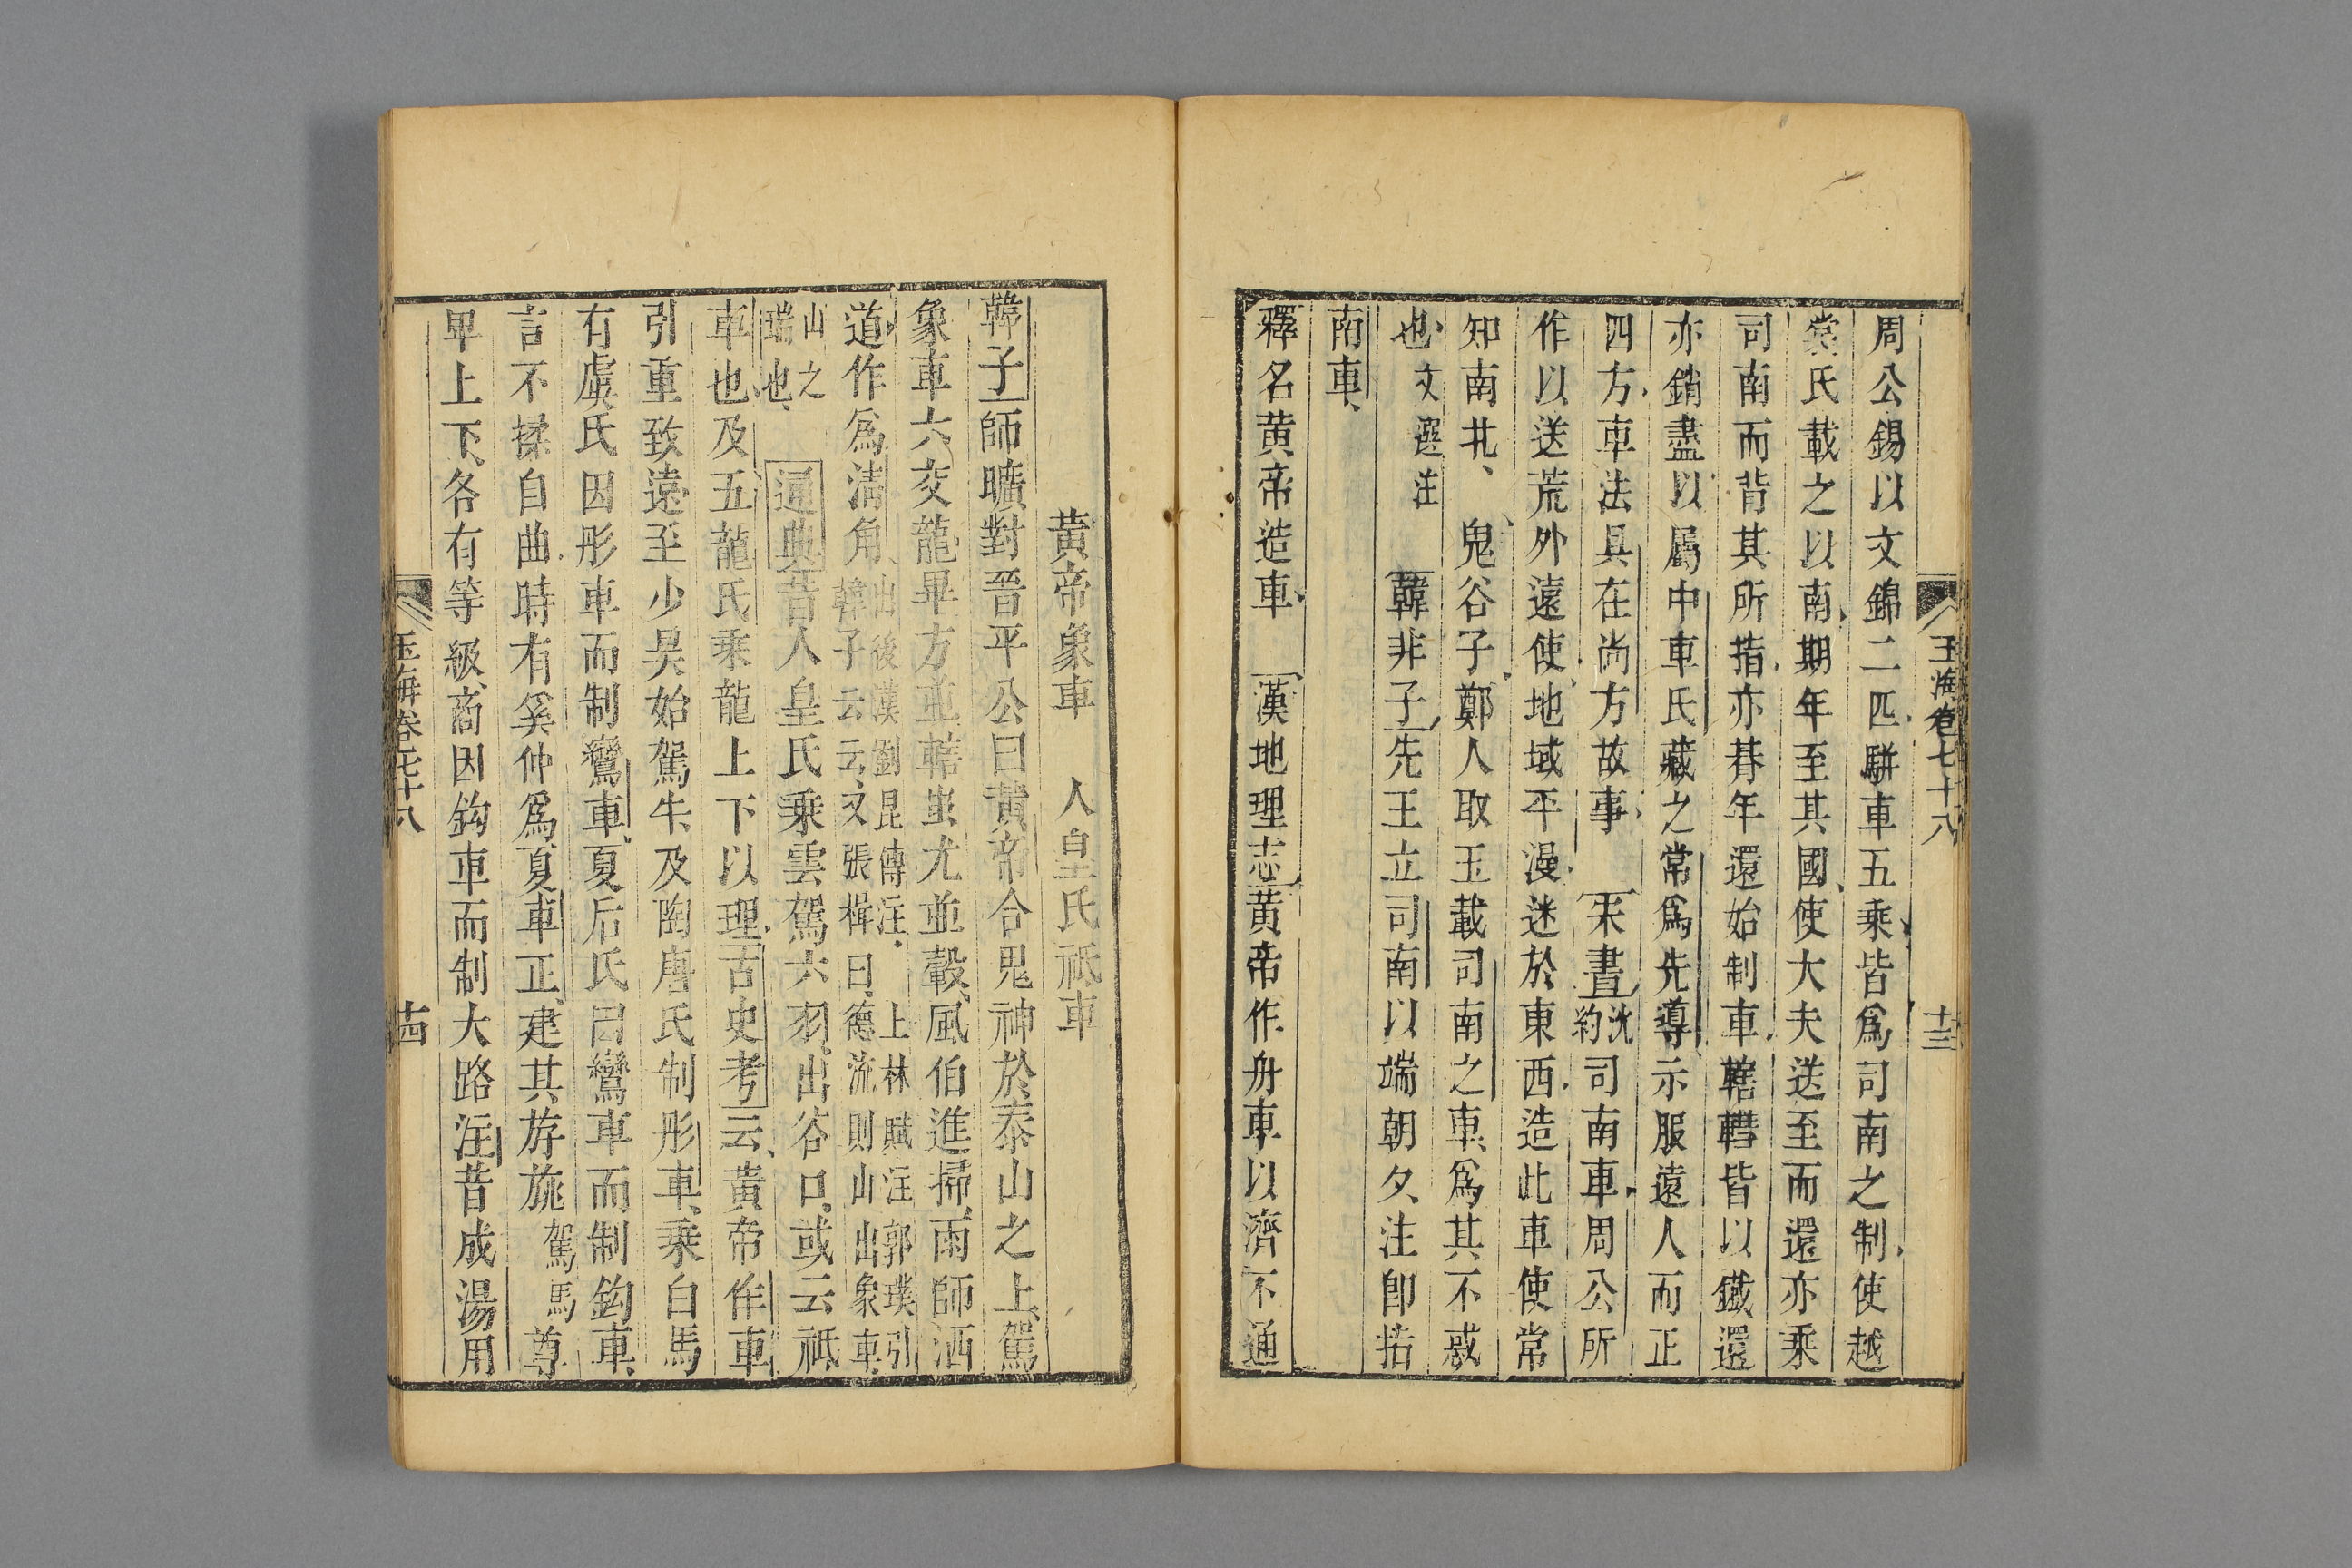 玉海卷七十八
十三
周公錫以文錦二匹駢車五乘皆爲司南之制使越
裳氏載之以南期年至其國使大夫送至而還亦乘
司南而背其所指亦朞年還始制車轄轊皆以鐵還
亦銷盡以屬巾車氏藏之常爲先導示服遠人而正
四方車法具在尚方故事 宋書沈約司南車周公所
作以送荒外遠使地域平漫迷於東西造此車使常
知南北 鬼谷子鄭人取玉載司南之車爲其不惑
也文選注 韓非子先王立司南以端朝夕注卽指
南車
釋名黄帝造車 漢地理志黄帝作舟車以濟不通
黄帝象車 人皇氏祗車
韓子師曠對晉平公曰黄帝合鬼神於泰山之上駕
象車六交龍畢方並轄蚩尤並轂風伯進掃雨師洒
道作爲清角出後漢劉昆傳注 上林賦注郭璞引韓子云云又張楫曰德流則山出象車
山之瑞也 通典昔人皇氏乘雲駕六羽出谷口或云祗
車也及五龍氏乘龍上下以理古史考云黄帝作車
引重致遠至少昊始駕牛及陶唐氏制彤車乘白馬
有虞氏因彤車而制鸞車夏后氏因鸞車而制鉤車
言不揉自曲時有奚仲爲夏車正建其斿旐駕馬尊
卑上下各有等級商因鉤車而制大路注昔成湯用
玉海卷七十八
十四